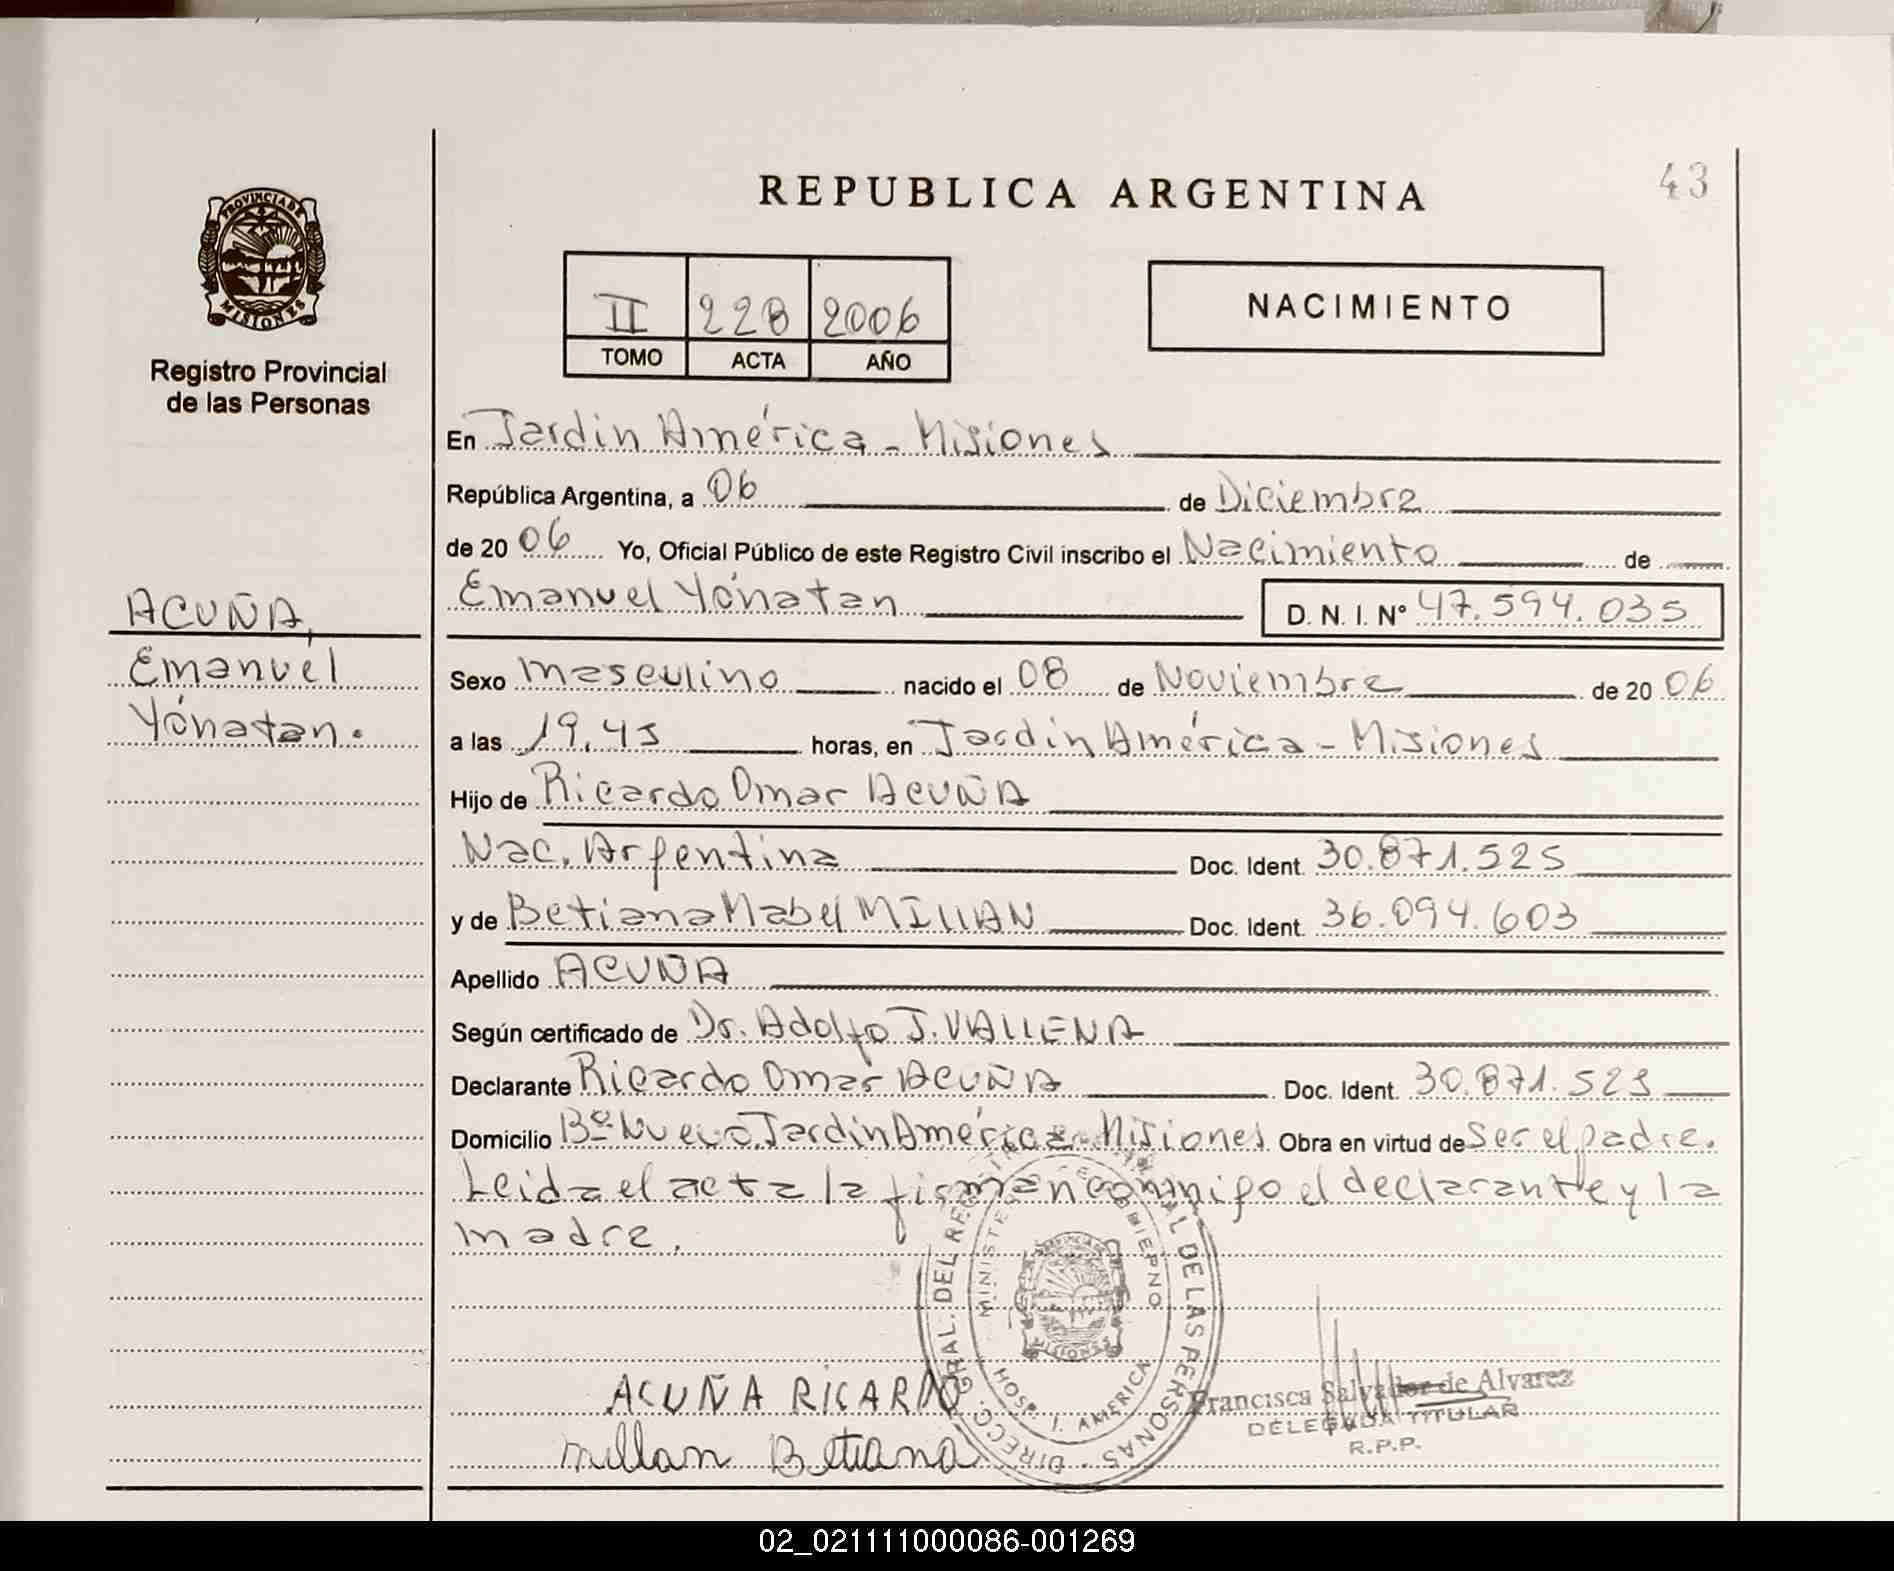 43
REPUBLICA ARGENTINA
PROVINCIA DE
MISIONES
Registro Provincial
de las Personas
II 228 2006
TOMO ACTA AÑO
NACIMIENTO
En Jardin América - Misiones
República Argentina, a 06 de Diciembre
de 20 06 Yo, Oficial Público de este Registro Civil inscribo el Nacimiento de
Emanuel Yónatan D. N. I. N° 47.594.035
ACUÑA,
Emanuel
Yónatan.
Sexo masculino nacido el 08 de Noviembre de 20 06
a las 19,45 horas, en Jardin América - Misiones
Hijo de Ricardo Omar ACUÑA
Nac. Argentina Doc. Ident. 30.871.525
y de Betiana Mabel MILLAN Doc. Ident. 36.094.603
Apellido ACUÑA
Según certificado de Dr. Adolfo J. VALLENA
Declarante Ricardo Omar ACUÑA Doc. Ident. 30.871.525
Domicilio Bº Nuevo, Jardin América - Misiones Obra en virtud de Ser el padre.
Leida el acta la firman conmigo el declarante y la
madre.
DIRECC. GRAL. DEL REGISTRO DE LAS PERSONAS
MINISTERIO GOBIERNO
HOSP. J. AMERICA
ACUÑA RICARDO
millan Betiana
Francisca Salvador de Alvarez
DELEGADA TITULAR
R.P.P.
02_021111000086-001269